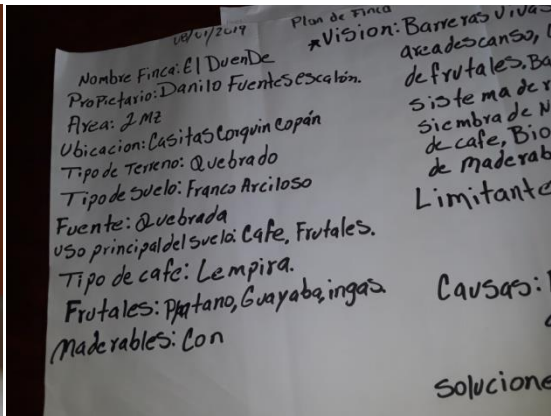 08/01/2019
Plan de Finca
Nombre Finca: El DuenDe
Propietario: Danilo Fuentes escalón.
Area: 2 Mz
Ubicacion: Casitas Corquin Copán
Tipo de Terreno: Quebrado
Tipo de Suelo: Franco Arciloso
Fuente: Quebrada
uso principal del suelo: Cafe, Frutales.
Tipo de cafe: Lempira.
Frutales: Platano, Guayaba, ingas.
Maderables: Con
*Vision: Barreras Vivas
area descanso,
de frutales, Ba
sistema de r
siembra de M
de cafe, Bio
de maderab
Limitante
Causas:
Solucione